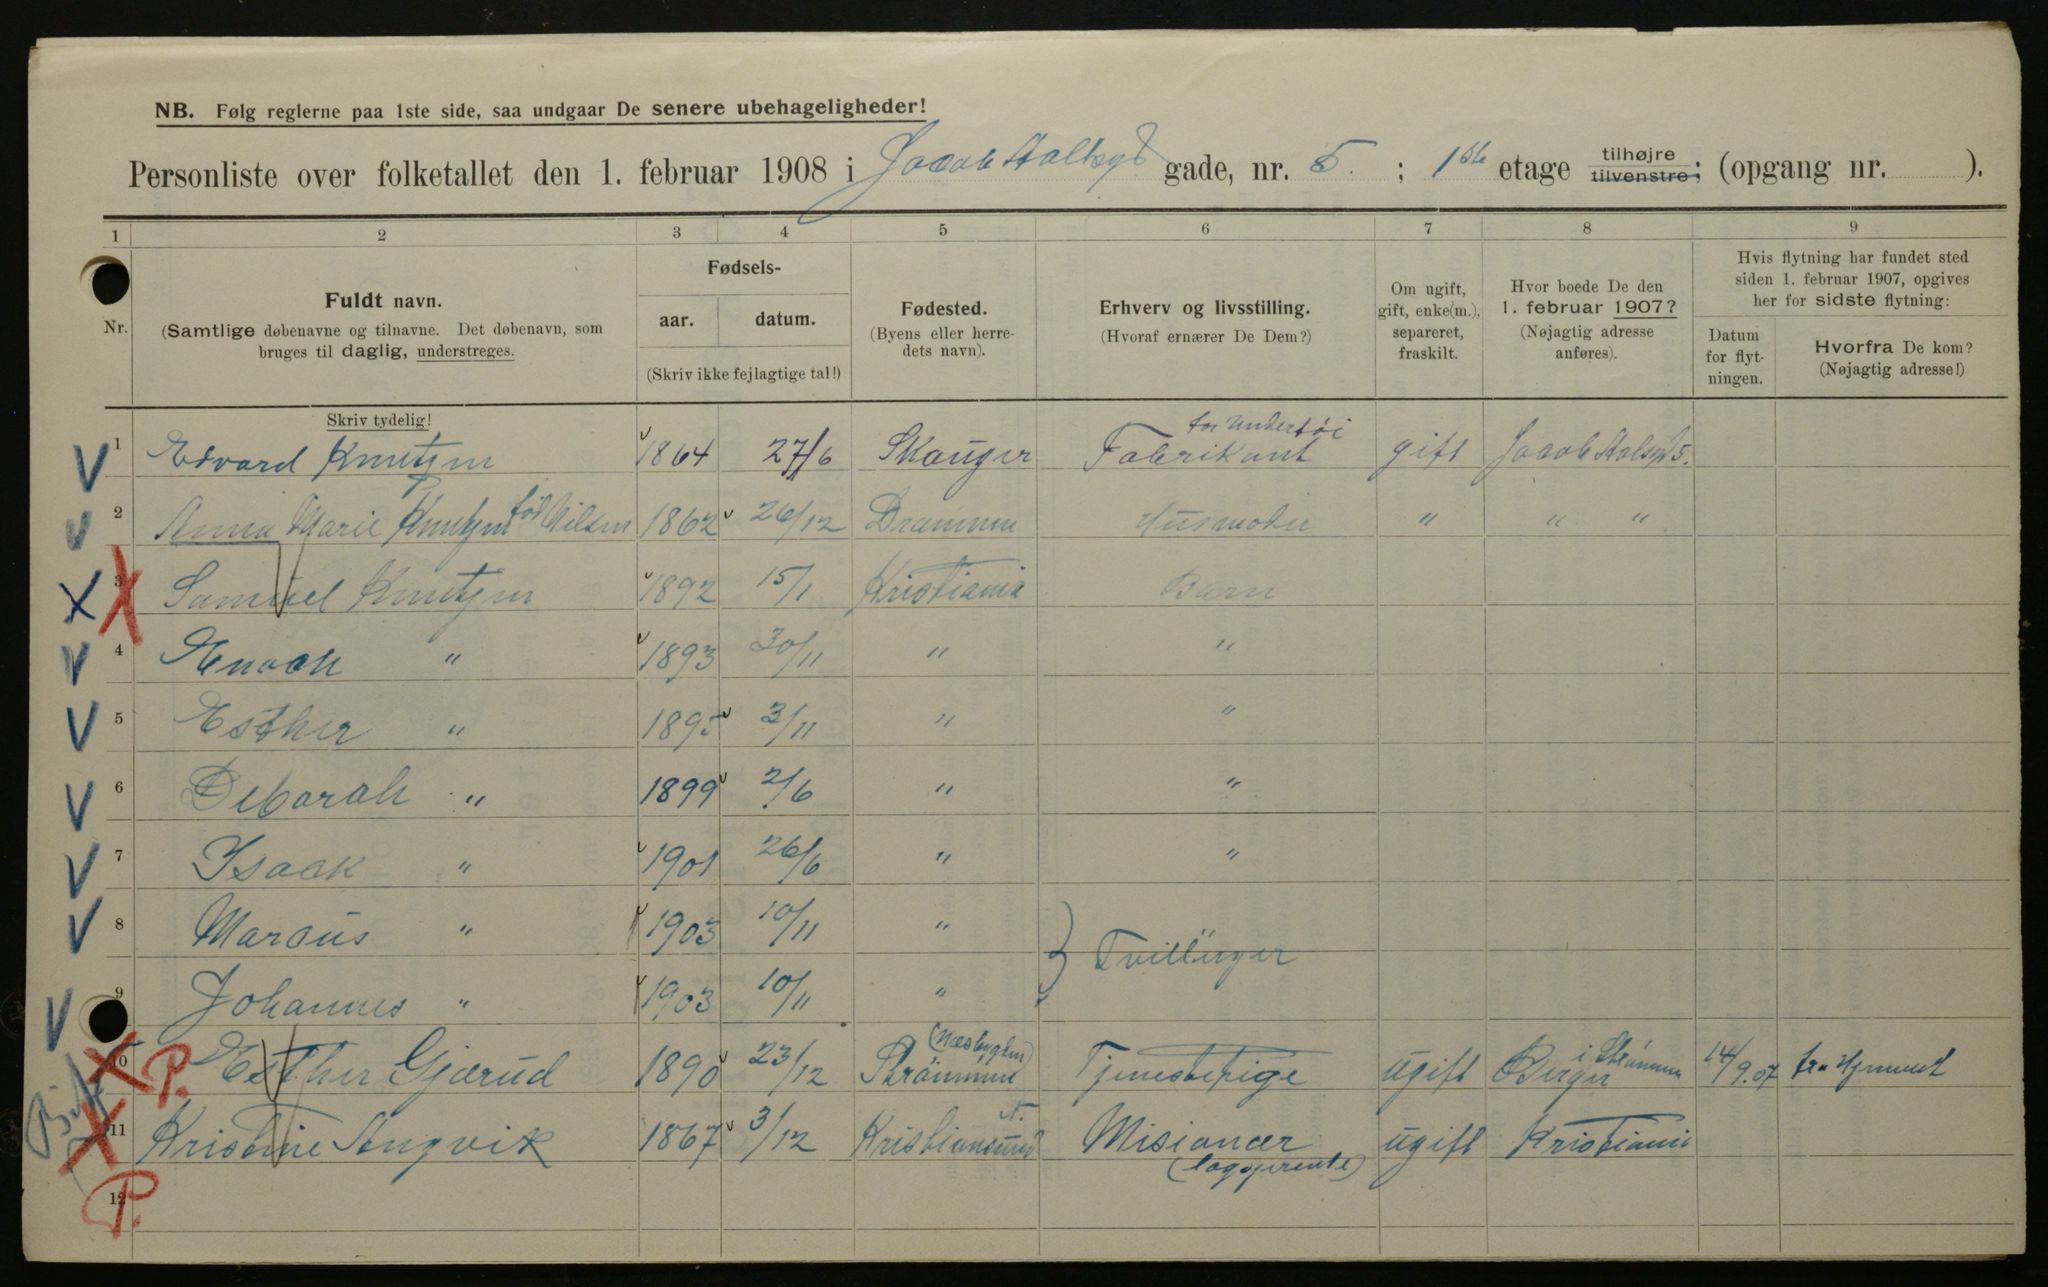 NB. Følg reglerne paa 1ste side, saa undgaar De senere ubehageligheder!
Personliste over folketallet den 1. februar 1908 i Jacob Aallsgt gade, nr. 5. ; 1ste etage tilhøjre tilvenstre; (opgang nr. ).
1 2 3 4 5 6 7 8 9
Nr.
Fuldt navn.
(Samtlige døbenavne og tilnavne. Det døbenavn, som
bruges til daglig, understreges.
Skriv tydelig!
Fødsels-
aar. datum.
(Skriv ikke fejlagtige tal!)
Fødested.
(Byens eller herre-
dets navn).
Erhverv og livsstilling.
(Hvoraf ernærer De Dem?)
Om ugift,
gift, enke(m.),
separeret,
fraskilt.
Hvor boede De den
1. februar 1907?
(Nøjagtig adresse
anføres).
Hvis flytning har fundet sted
siden 1. februar 1907, opgives
her for sidste flytning:
Datum
for flyt-
ningen.
Hvorfra De kom?
(Nøjagtig adresse!)
for Undertøi
1 Edvard Knutzen 1864 27/6 Skauger Fabrikant gift Jacob Aalsgt 5.
2 Anna Marie Knutzen fød Nilsen 1862 26/12 Drammen Husmoder " " "
3 Samuel Knutzen 1892 15/1 Kristiania Barn
4 Enoch " 1893 30/11 " "
5 Esther " 1895 3/11 " "
6 Deborah " 1899 2/6 " "
7 Isaak " 1901 26/6 " "
8 Marcus " 1903 10/11 " } Tvillinger
9 Johannes " 1903 10/11 "
10 P. Esther Gjærud 1890 23/12 Strömmen Tjenestepige ugift Berger i Strömmen 14/9.07
11 Kristine Angvik 1867 3/12 Kristiansund N. Misionær ugift Kristiania
(logjerende)
12 P.